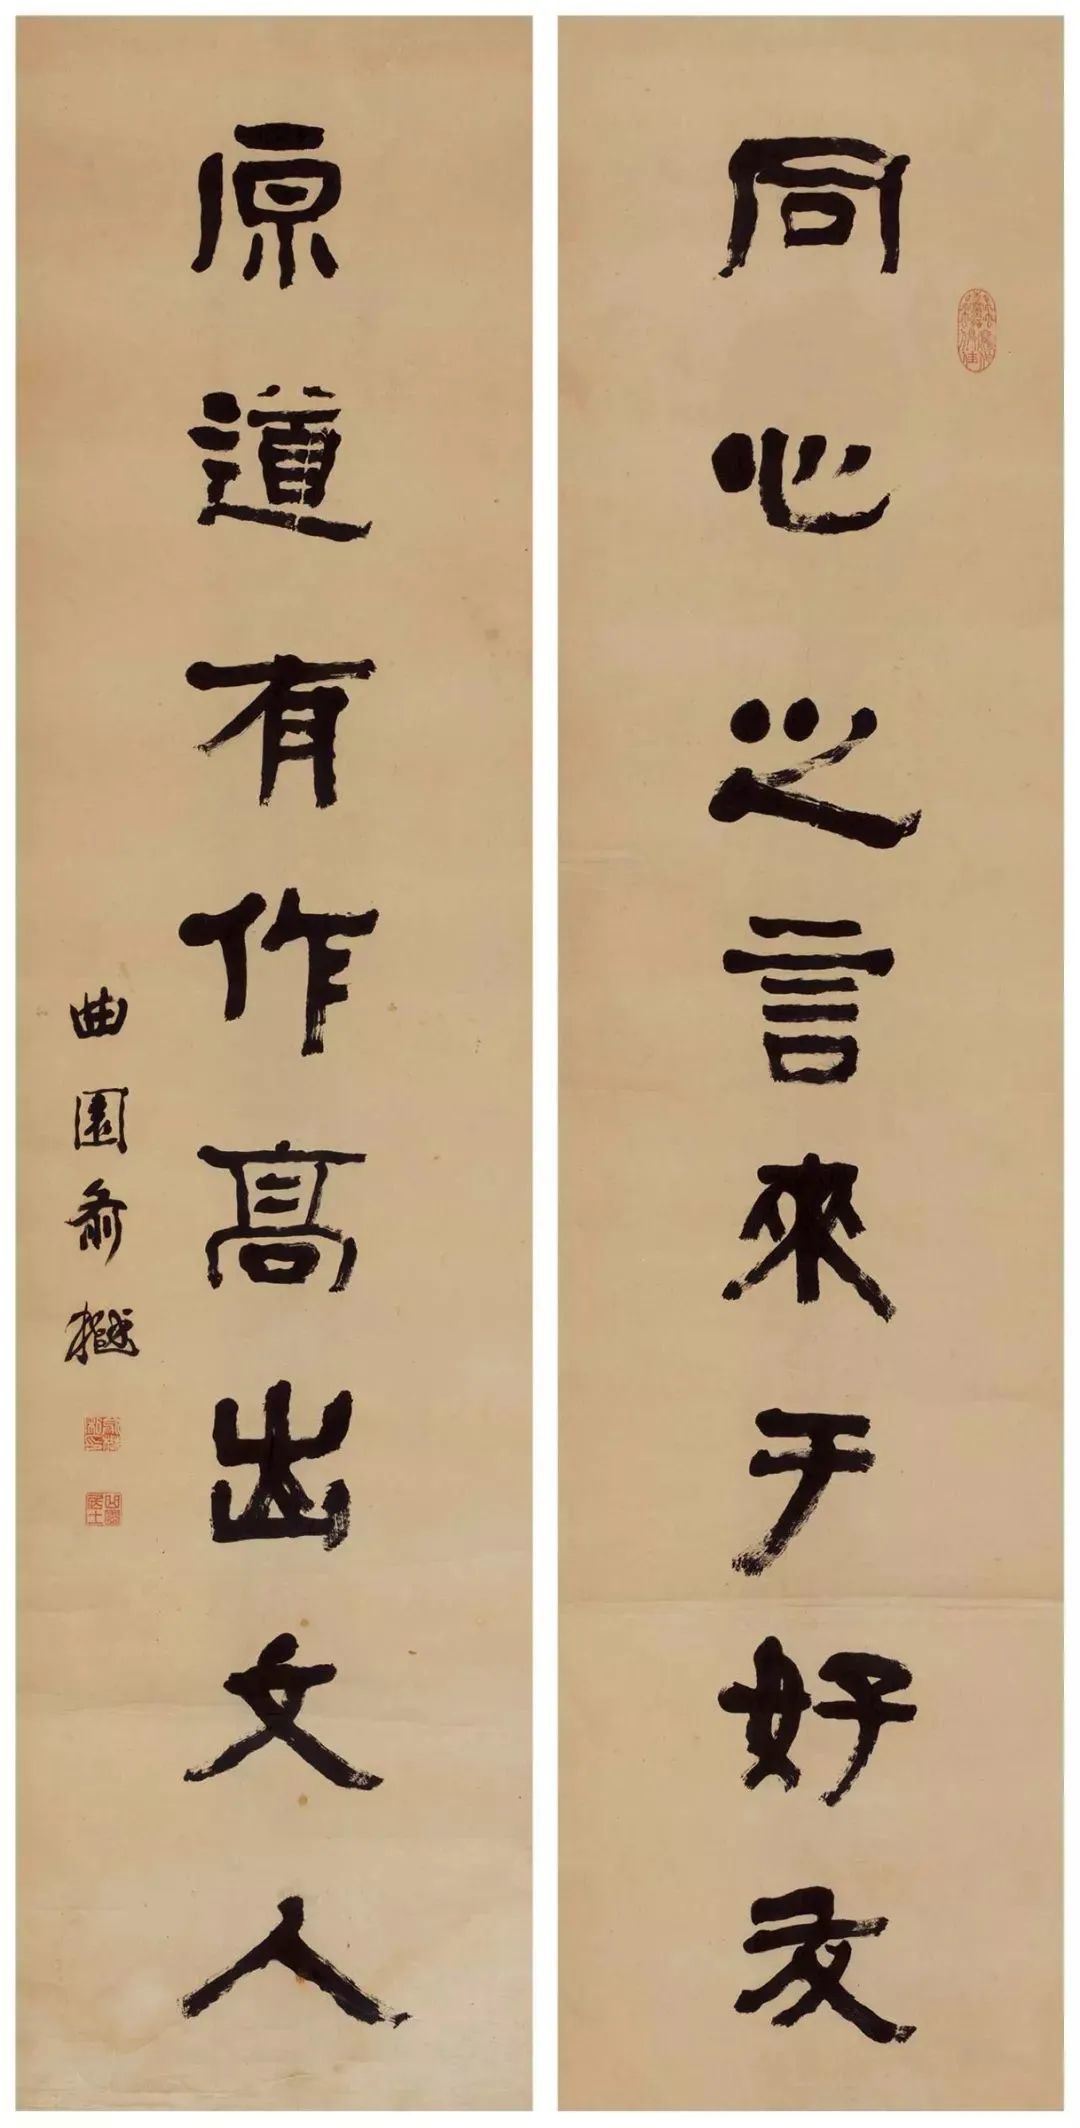 同心之言来于好友
原道有作高出文人
曲園俞樾